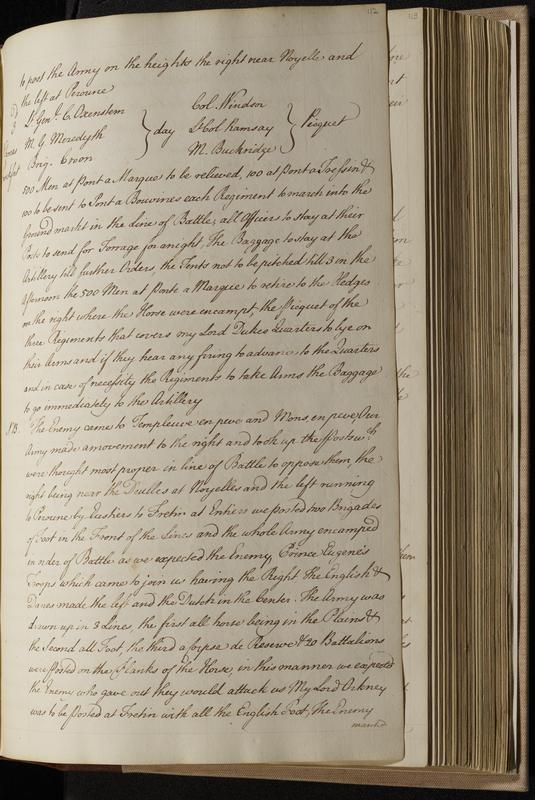 112
to post the Army on the heights the right near Noyelle and
the left at Peroune
Lt Genl. C. Oxenstern
M. G. Meredyth
Brig. Croon
day
Col. Windsor
Lt Col Ramsay
M. Buckridge
Picquet
500 Men at Pont a Marque to be relieved, 100 at Pont a &
100 to be sent to Pont a Bouvines each Regiment to march into the
Ground markt in the Line of Battle; all Officers to stay at their
Posts to send for Forrage for a night, The Baggage to stay at the
Artillery till further Orders, the Tents not to be pitched till 3 in the
afternoon the 500 Men at Ponte a Marque to retire to the Hedges
on the right where the Horse were encampt the Picquet of the
three Regiments that covers my Lord Dukes Quarters to lye on
their Arms and if they hear any firing to advance to the Quarters
and in case of necessity the Regiments to take Arms the Baggage
to go immediately to the Artillery
NB. The Enemy came to Templeuve en peve and Mons en peve, Our
Army made a movement to the right and took up the Posts wch
were thought most proper in line of Battle to oppose them, the
right being near the Deulles at Noyelles and the left running
to Peroune by Fretin at Entiers we posted two Brigades
of Foot in the Front of the Lines and the whole Army encamped
in order of Battle as we expected the Enemy, Prince Eugene's
Troops which came to join us having the Right the English &
Danes made the left and the Dutch in the Center. The Army was
drawn up in 3 Lines, the first all horse being in the Plains &
the Second all Foot, the third a Corpse de Reserve & 20 Battalions
were Posted on the Flanks of the Horse, in this manner we expected
the Enemy who gave out they would attack us My Lord Orkney
was to be Posted at Fretin with all the English Foot, The Enemy
march'd